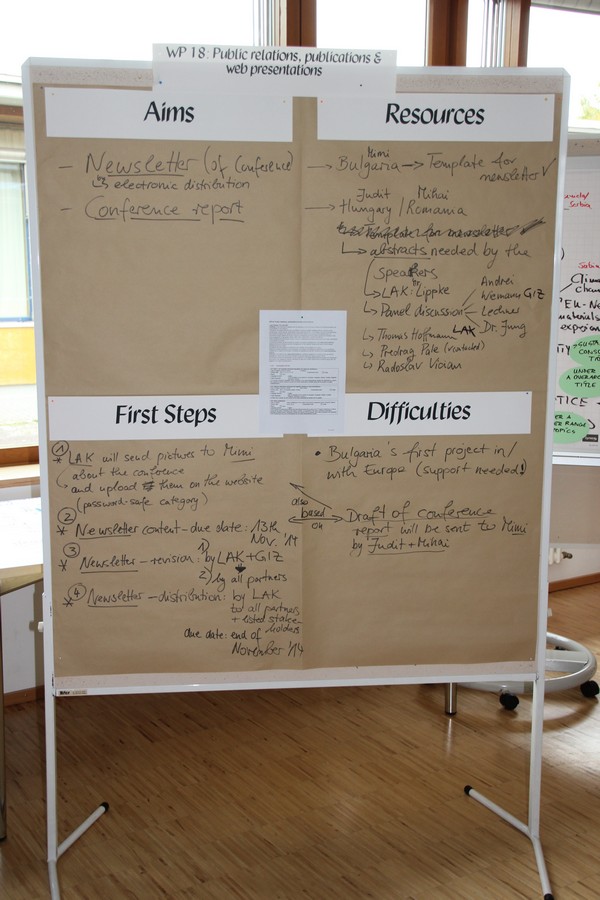 WP 18: Public relations, publications &
web presentations
Aims
– Newsletter (of Conference)
↳ electronic distribution
– Conference report
Resources
Mimi
→ Bulgaria → Template for
newsletter ✓
Judit Mihai
→ Hungary / Romania
Template for newsletter
↳ abstracts needed by the
speakers
↳ LAK: Lippke
↳ Panel discussion
Andrei
GIZ
Lechner
Dr. Jung
↳ Thomas Hoffmann LAK
↳ Predrag Pale
↳ Radoslav Vician
First Steps
① * LAK will send pictures to Mimi
about the conference
and upload them on the website
(password-safe category)
② * Newsletter content – due date: 13th
Nov. '14
③ * Newsletter – revision: 1) by LAK + GIZ
2) by all partners
④ * Newsletter – distribution: by LAK
to all partners
+ listed stakeholders
due date: end of
November '14
Difficulties
• Bulgaria's first project in/
with Europe (support needed!)
also
based
on
Draft of conference
report will be sent to Mimi
by Judit + Mihai